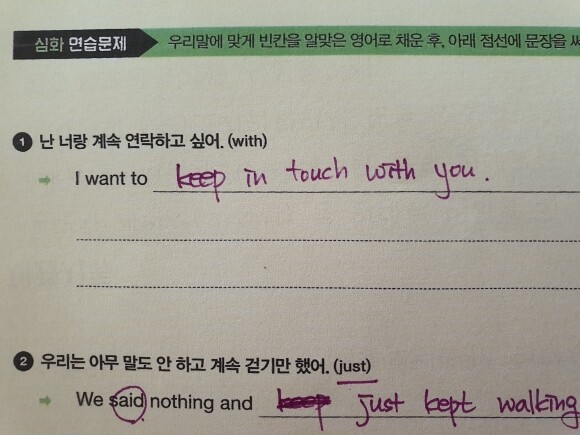 심화 연습문제
우리말에 맞게 빈칸을 알맞은 영어로 채운 후, 아래 점선에 문장을 써
1 난 너랑 계속 연락하고 싶어. (with)
→ I want to keep in touch with you.
2 우리는 아무 말도 안 하고 계속 걷기만 했어. (just)
→ We said nothing and keep just kept walking